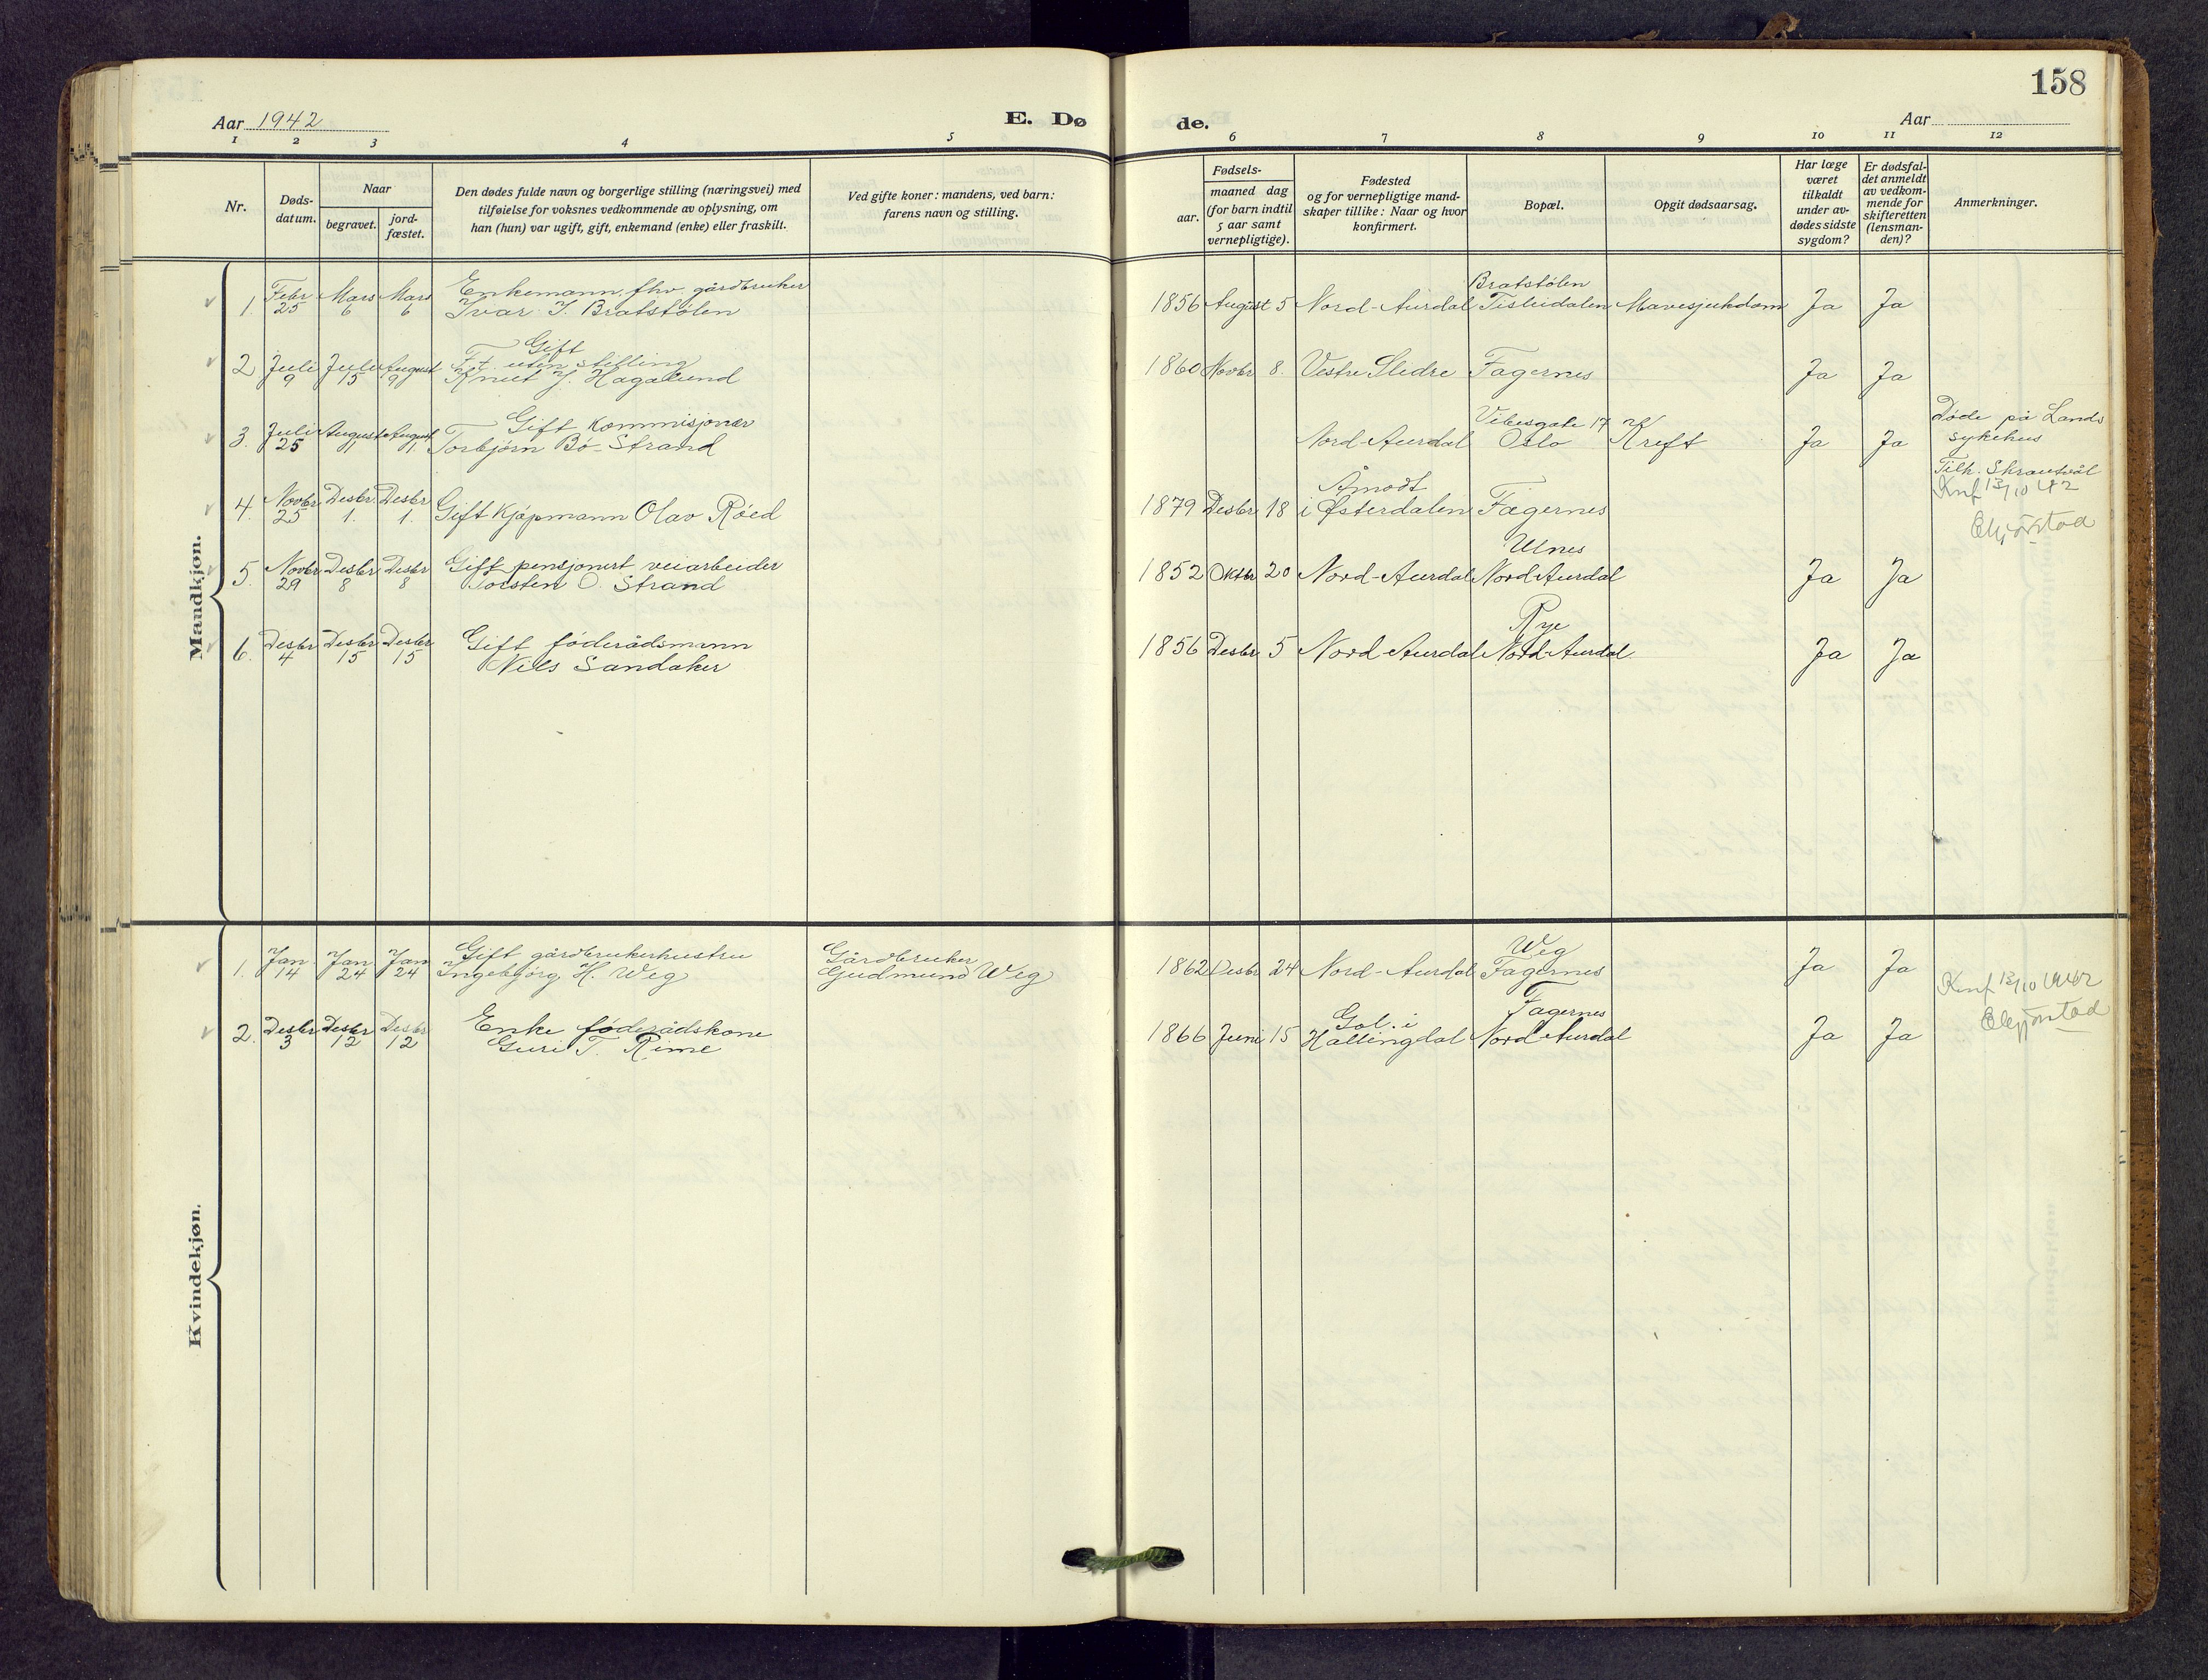 158
Aar 1942
E. Dø
de.
Aar
1 2 3 4 5 6 7 8 9 10 11 12
Nr.
Døds-
datum.
Naar
begravet.
jord-
fæstet.
Den dødes fulde navn og borgerlige stilling (næringsvei) med
tilføielse for voksnes vedkommende av oplysning, om
han (hun) var ugift, gift, enkemand (enke) eller fraskilt.
Ved gifte koner: mandens, ved barn:
farens navn og stilling.
Fødsels-
aar.
maaned dag
(for barn indtil
5 aar samt
vernepligtige).
Fødested
og for vernepligtige mand-
skaper tillike: Naar og hvor
konfirmert.
Bopæl.
Opgit dødsaarsag.
Har læge
været
tilkaldt
under av-
dødes sidste
sygdom?
Er dødsfal-
det anmeldt
av vedkom-
mende for
skifteretten
(lensman-
den)?
Anmerkninger.
Mandkjøn.
Enkemann fhv. gårdbruker Bratstølen
1. Febr 25 Mars 6 Mars 6 Ivar I. Bratstølen 1856 August 5 Nord-Aurdal Tisleidalen Mavesjukdom Ja Ja
Gift
F.t. uten stilling
2 Juli 9 Juli 15 August 9 Knut J. Hagalund 1860 Novbr 8. Vestre Slidre Fagernes Ja Ja
Gift Kommisjonær Vibesgate 17 Døde på Lands
3. Juli 25 August 1 August 1. Torbjørn Bø-Strand Nord-Aurdal Oslo Kreft Ja Ja sykehus
Tilh. Skrautvål
Åmodt Knf 13/10 42
4. Novbr 25 Desbr. 1. Desbr 1. Gift Kjøpmann Olav Røed 1879 Desbr 18 i Østerdalen Fagernes
Gift pensjonert veiarbeider Ulnes
5. Novbr 29 Desbr 8 Desbr 8 Torsten O. Strand 1852 Oktbr 20 Nord-Aurdal Nord Aurdal Ja Ja
Gift føderådsmann Rye
6. Desbr 4 Desbr 15 Desbr 15 Nils Sandaker 1856 Desbr 5 Nord-Aurdal Nord-Aurdal Ja Ja
Kvindekjøn.
Gift gårdbrukerhustru Gårdbruker Weg
1. Jan 14 Jan 24 Jan 24 Ingebjørg H. Weg Gudmund Weg 1862 Desbr 24 Nord-Aurdal Fagernes Ja Ja
Knf 13/10
Enke føderådskone Gol i Fagernes
2. Desbr 3 Desbr 12 Desbr 12 Guri T. Rime 1866 Juni 15 Hallingdal Nord-Aurdal Ja Ja